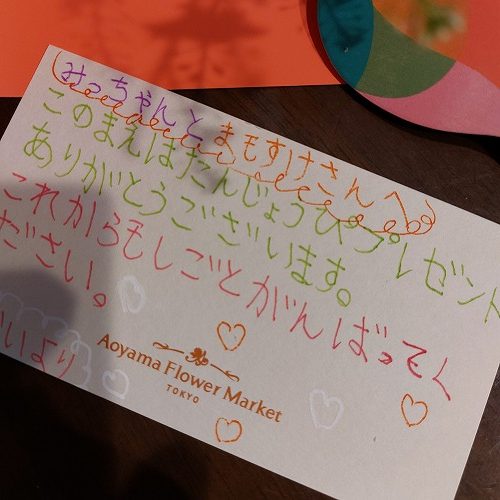 みっちゃんと まもすけさんへ
このまえはたんじょうびプレゼント
ありがとうございます。
これからもしごとがんばってく
ださい。
いより
Aoyama Flower Market
TOKYO